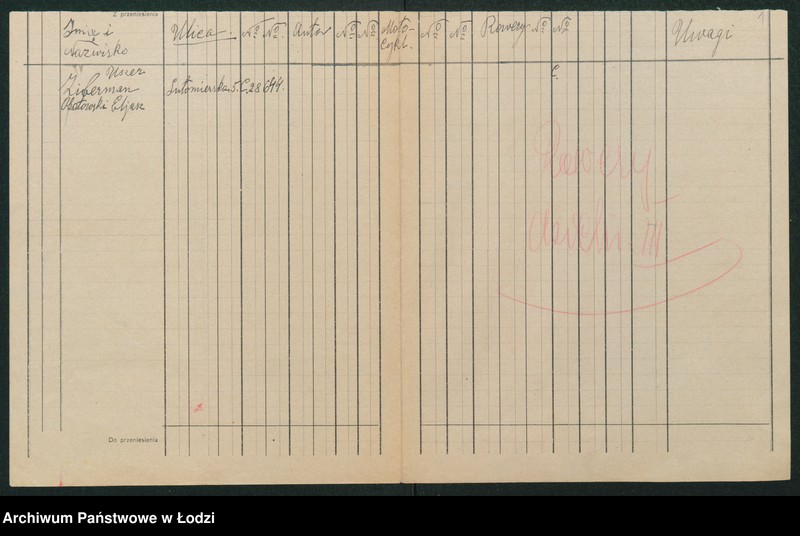 Z przeniesienia
1
Imię i Nazwisko
Ulica. № №. Autor № № Moto-cykl. № № Rowery № № Uwagi
Uszer
Ziberman Lutomierska 5. C. 28 644. C.
Eljasz
Rowery
III
Do przeniesienia
Archiwum Państwowe w Łodzi